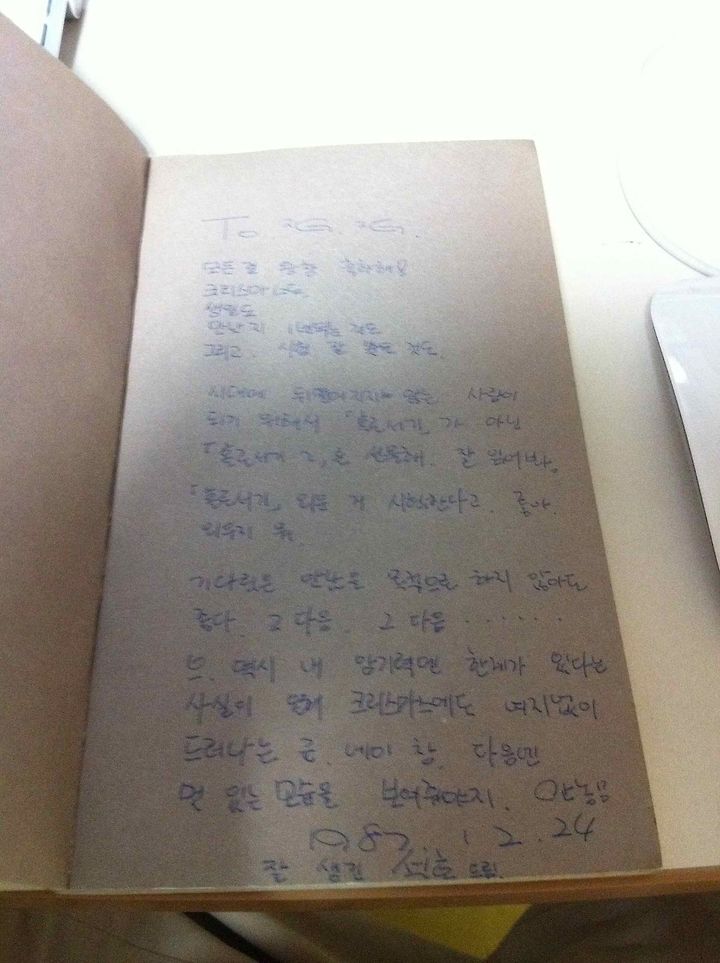 To
모든 걸 축하해요
크리스마스도
생일도
만난지 1년되는 것도
그리고. 시험 잘 본 것도.
시대에 뒤떨어지지 않는 사람이
되기 위해서 「홀로서기」가 아닌
「홀로서기 2」를 선물해. 잘 읽어봐.
「홀로서기」 외운 거 시험한다고. 좋아.
외우지 뭐.
기다림은 만남을 목적으로 하지 않아도
좋다. 그 다음. 그 다음 . . . . . .
역시 내 암기력엔 한계가 있다는
사실이 크리스마스에도 여지없이
드러나는 군. 다음엔
멋 있는 모습을 보여줘야지.
1987. 12. 24
잘 생긴 드림.